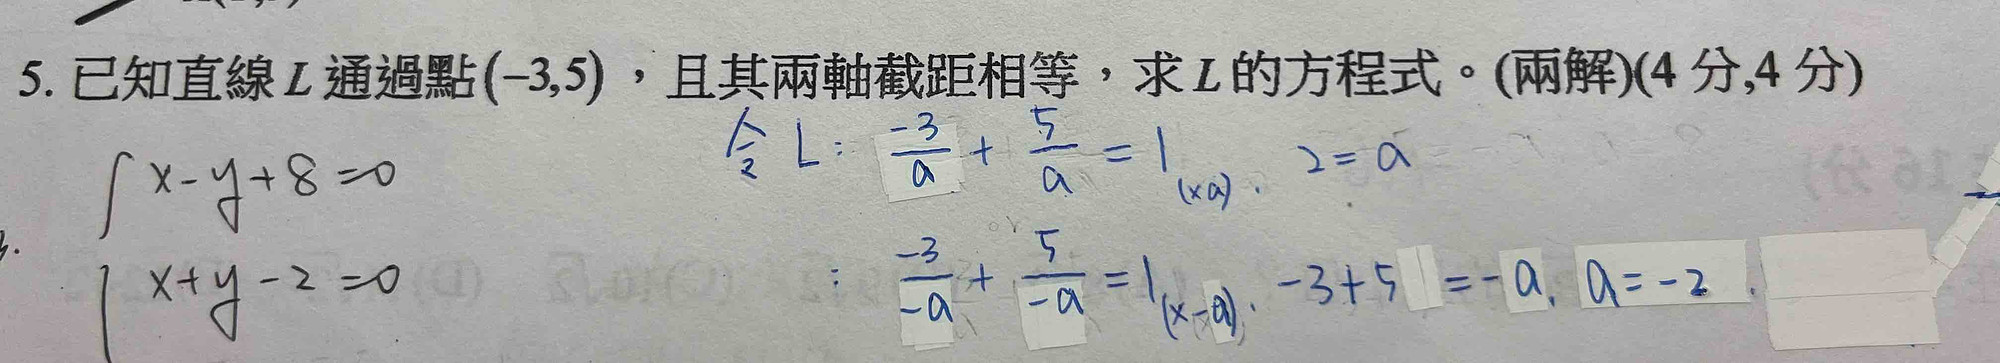 5. 已知直線 L 通過點(−3,5)，且其兩軸截距相等，求 L 的方程式。(兩解)(4 分,4 分)
令 L: -3/a + 5/a = 1 (×a). 2 = a
x - y + 8 = 0
: -3/-a + 5/-a = 1 (×-a). -3+5 = -a. a = -2.
x + y - 2 = 0